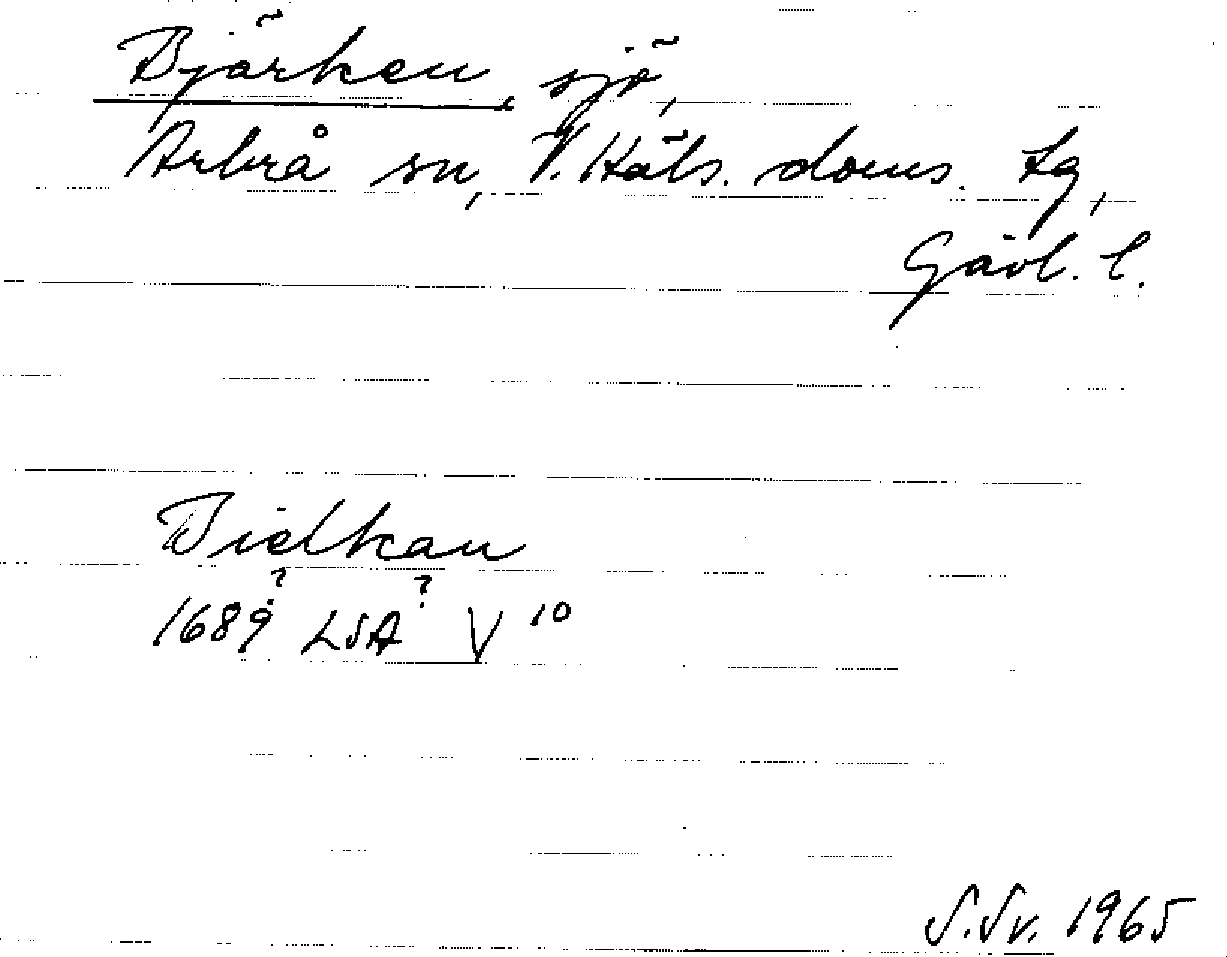 Bjärken, sjö,
Arbrå sn, V. Häls. doms. tg,
Gävl. l.
Bielkan
1689? LSA? V 10
S.Sv. 1965